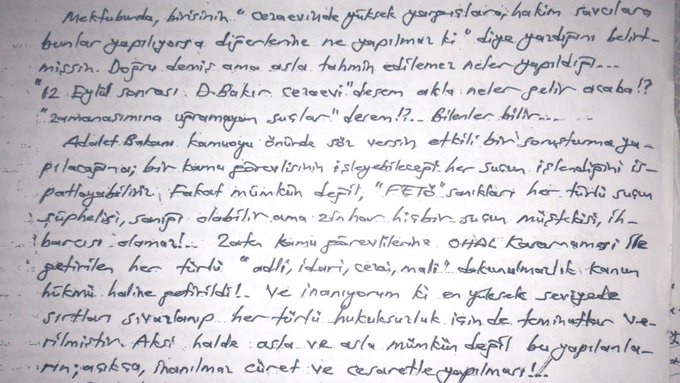 Mektubunda, birisinin "cezaevinde yüksek yargıçlara, hakim savcılara
bunlar yapılıyorsa diğerlerine ne yapılmaz ki" diye yazdığını belirt-
mişsin. Doğru demiş ama asla tahmin edilemez neler yapıldığı...
"12 Eylül sonrası D.Bakır cezaevi" desem akla neler gelir acaba!?
"zamanaşımına uğramayan suçlar" desem!?.. Bilenler bilir....
Adalet Bakanı kamuoyu önünde söz versin etkili bir soruşturma ya-
pılacağına; bir kamu görevlisinin işleyebileceği her suçun işlendiğini is-
patlayabiliriz. Fakat mümkün değil, "FETÖ" sanıkları her türlü suçun
şüphelisi, sanığı olabilir ama zinhar hiçbir suçun müştekisi, ih-
barcısı olamaz!.. Zaten kamu görevlilerine OHAL Kararnamesi ile
getirilen her türlü "adli, idari, cezai, mali" dokunulmazlık kanun
hükmü haline getirildi!.. Ve inanıyorum ki en yüksek seviyede
sırtları sıvazlanıp her türlü hukuksuzluk için de teminatlar ve-
rilmiştir. Aksi halde asla ve asla mümkün değil bu yapılanla-
rın; açıkça, inanılmaz cüret ve cesaretle yapılması!..